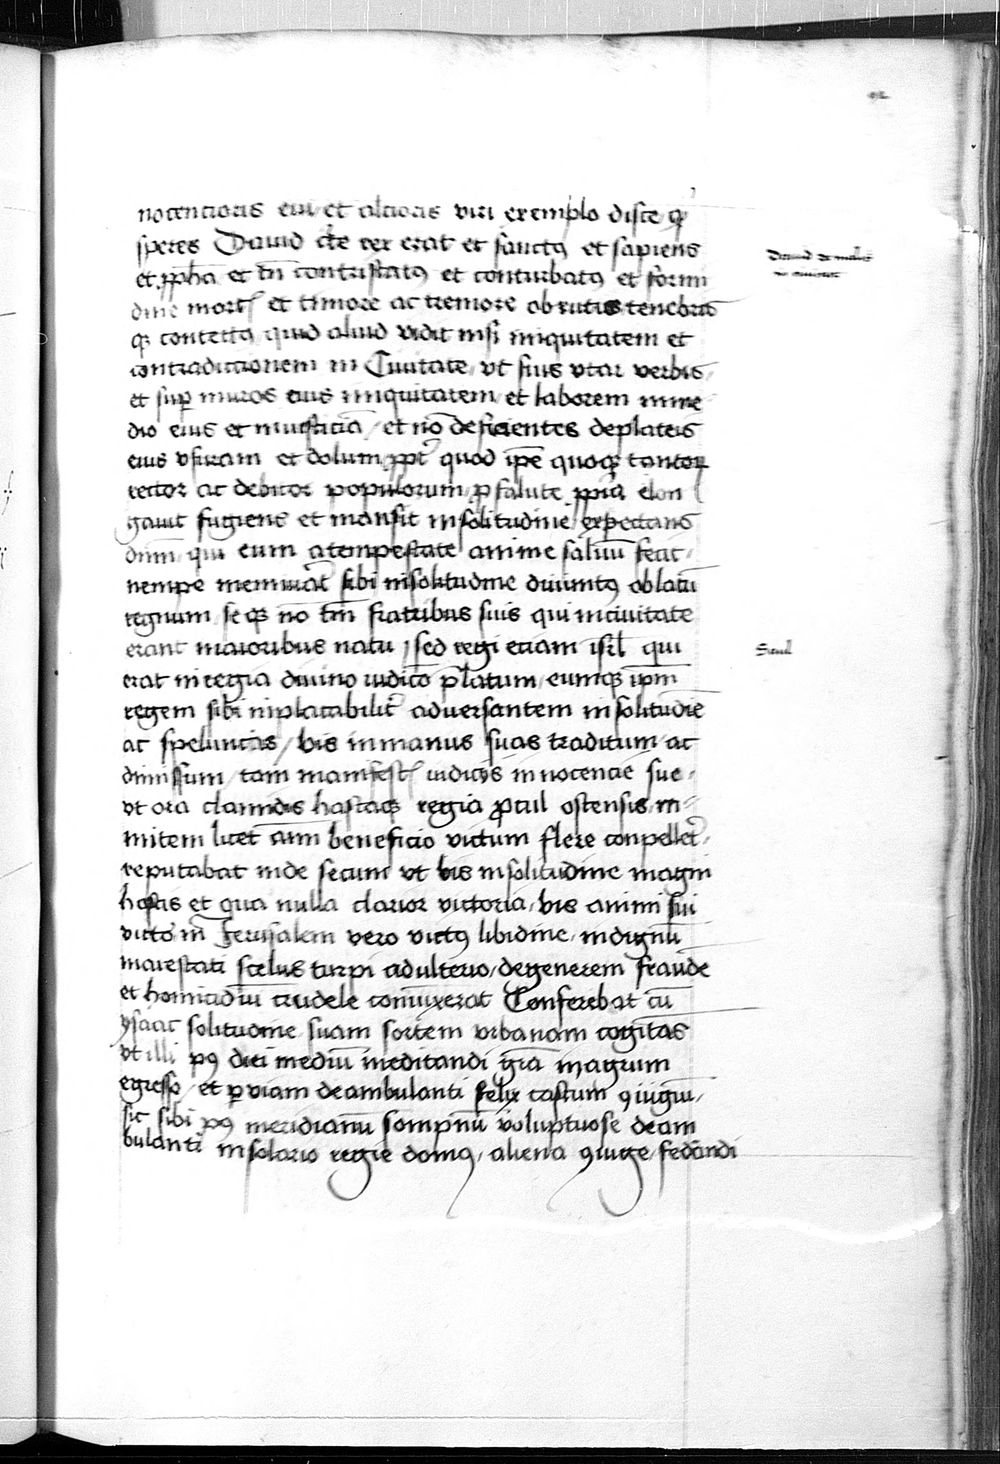 nocencioris eui et alcioris viri exemplo disce qͥ
speres Dauid c̄te rex erat et sanctꝰ et sapiens
et ꝓph̄a et tn̄ contristatꝰ et conturbatꝰ et formi
dine mort͛ et timore ac tremore obrutus tenebris
qꝫ contectꝰ quid aliud vidit nisi iniquitatem et
contradiccionem in Ciuitate, vt suis vtar verbis,
et sup̄ muros eius iniquitatem, et laborem in me
dio eius et iniusticiā, et nō deficientes de plateis
eius vsuram et dolum ꝓpt̄ quod ip̄e quoqꝫ tantoꝝ
rector ac debitor populorum, ꝓ salute ꝓpia elon
gauit fugiens et mansit in solitudine, expectans
dn̄m, qui eum a tempestate anime saluū fecit,
nempe meminerat sibi in solitudine diuinitꝰ oblatū
regnum, se qꝫ nō tm̄ fratribus suis qui in ciuitate
erant maioribus natu, sed regi eciam isrl̄ qui
erat in regia diuino iudicō p̄latum, eumqꝫ ip̄m
regem sibi inplacabilit̄ aduersantem in solitudiē
ac speluncis, bis in manus suas traditum, ac
dimissum, tam manifest͛ iudicijs innocencie sue,
vt ora clamidis hastaqꝫ regia ꝓcul ostensis, in
mitem licet aīm beneficio victum flere conpellet̄,
reputabat inde secum vt bis in solitudine magni
hostis et qua nulla clarior victoria, bis animi sui
victor, in Jerusalem vero victꝰ libidine, indignū
maiestati scelus turpi adulterio, degenerem fraude
et homicidiū crudele coniūxerat Conferebat cū
ysaac solitudine suam sortem vrbanam cogitās
vt illi pꝰ diei mediū meditandi grā in agrum
egresso, et ꝑ viam deambulanti felix castum ꝯiugiū,
sic sibi pꝰ meridianū sompnū voluptuose deam
bulanti in solario regie domꝰ, aliena ꝯiuge, fedandi
Saul